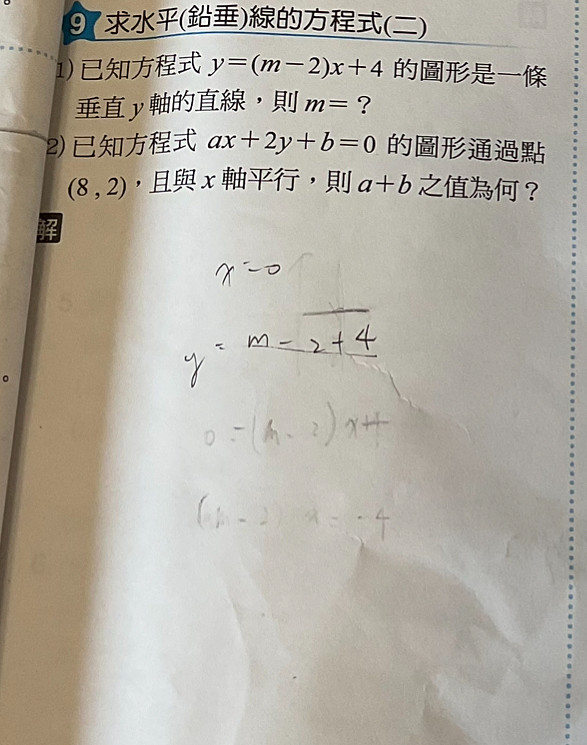 9 求水平(鉛垂)線的方程式(二)
1) 已知方程式 y=(m-2)x+4 的圖形是一條
垂直 y 軸的直線,則 m=?
2) 已知方程式 ax+2y+b=0 的圖形通過點
(8,2),且與 x 軸平行,則 a+b 之值為何?
解
x=0
y = m-2+4
0=(m-2)x+4
(m-2)x=-4